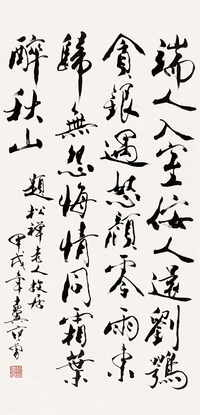 端人入室佞人還劉鶚
貪銀遇顏零雨東
歸無怨悔情同霜葉
醉秋山
題松禪老人故居
甲戌年